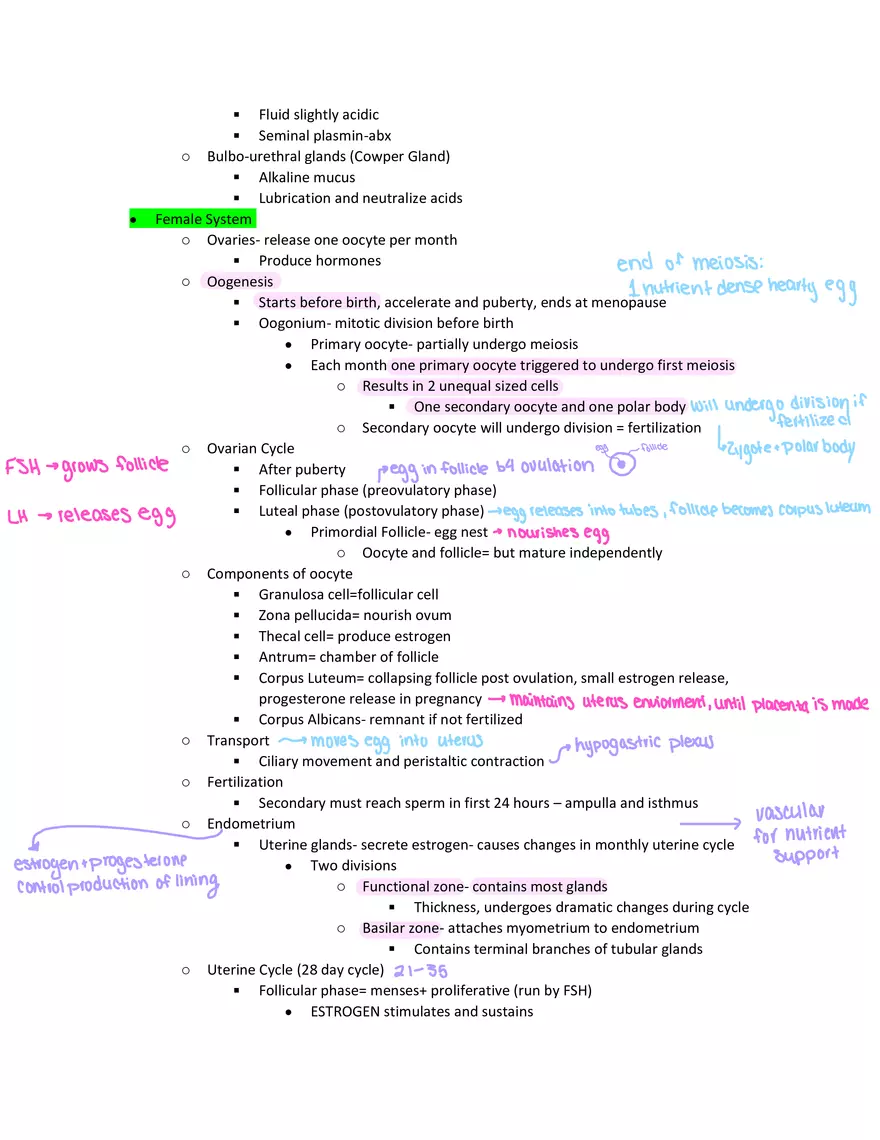 ▪ Fluid slightly acidic
▪ Seminal plasmin-abx
○ Bulbo-urethral glands (Cowper Gland)
▪ Alkaline mucus
▪ Lubrication and neutralize acids
● Female System
○ Ovaries- release one oocyte per month
▪ Produce hormones
end of meiosis:
1 nutrient dense hearty egg
○ Oogenesis
▪ Starts before birth, accelerate and puberty, ends at menopause
▪ Oogonium- mitotic division before birth
● Primary oocyte- partially undergo meiosis
● Each month one primary oocyte triggered to undergo first meiosis
○ Results in 2 unequal sized cells
▪ One secondary oocyte and one polar body will undergo division if
fertilized
○ Secondary oocyte will undergo division = fertilization
↳ zygote + polar body
○ Ovarian Cycle
egg follicle
FSH → grows follicle
▪ After puberty
→ egg in follicle b4 ovulation
▪ Follicular phase (preovulatory phase)
LH → releases egg
▪ Luteal phase (postovulatory phase) → egg releases into tubes, follicle becomes corpus luteum
● Primordial Follicle- egg nest → nourishes egg
○ Oocyte and follicle= but mature independently
○ Components of oocyte
▪ Granulosa cell=follicular cell
▪ Zona pellucida= nourish ovum
▪ Thecal cell= produce estrogen
▪ Antrum= chamber of follicle
▪ Corpus Luteum= collapsing follicle post ovulation, small estrogen release,
progesterone release in pregnancy → maintains uterus enviorment, until placenta is made
▪ Corpus Albicans- remnant if not fertilized
○ Transport → moves egg into uterus
→ hypogastric plexus
▪ Ciliary movement and peristaltic contraction
○ Fertilization
▪ Secondary must reach sperm in first 24 hours – ampulla and isthmus
○ Endometrium
→ vascular
for nutrient
support
▪ Uterine glands- secrete estrogen- causes changes in monthly uterine cycle
estrogen + progesterone
control production of lining
● Two divisions
○ Functional zone- contains most glands
▪ Thickness, undergoes dramatic changes during cycle
○ Basilar zone- attaches myometrium to endometrium
▪ Contains terminal branches of tubular glands
○ Uterine Cycle (28 day cycle) 21-35
▪ Follicular phase= menses+ proliferative (run by FSH)
● ESTROGEN stimulates and sustains